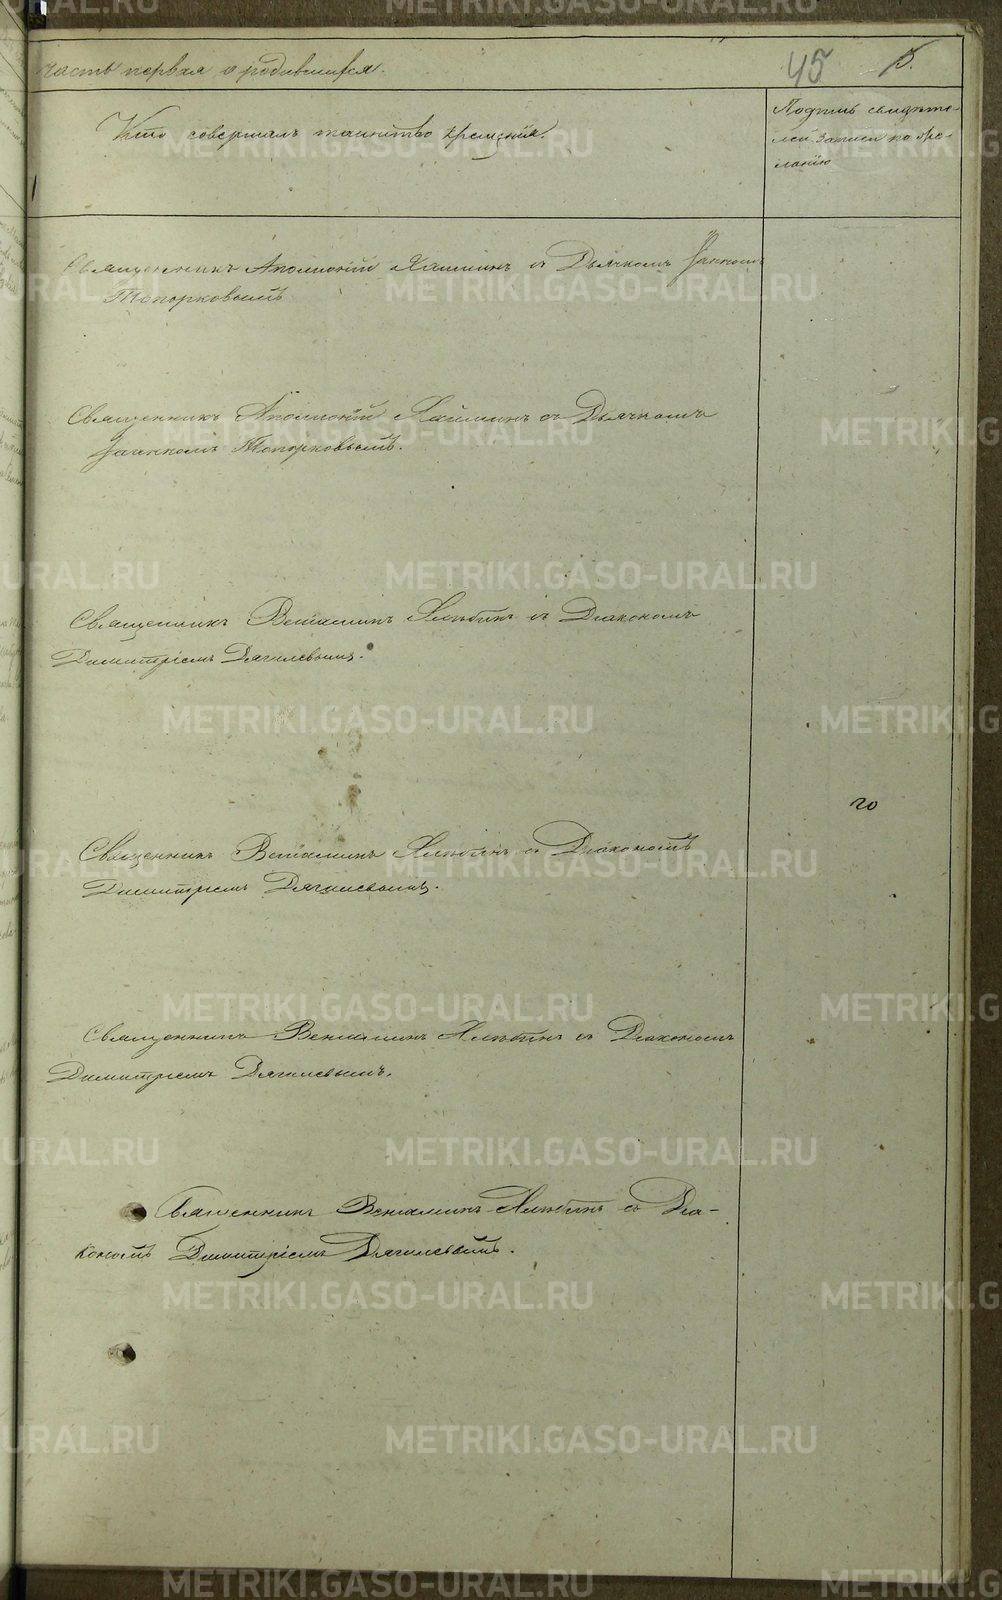 часть первая о родившихся.
45
5.
Кто совершалъ таинство крещенія.
Подпись свидѣте-
лей записи по же-
ланію
Священникъ Аполлоній с Дьячкомъ
Топорковымъ
Священникъ Аполлоній съ Дьячкомъ
Топорковымъ.
Священникъ Веніаминъ съ Діакономъ
Димитріемъ Дягилевымъ.
Священникъ Веніаминъ съ Діакономъ
Димитріемъ Дягилевымъ.
Священникъ Веніаминъ съ Діакономъ
Димитріемъ Дягилевымъ.
Священникъ Веніаминъ съ Діа-
кономъ Димитріемъ Дягилевымъ.
METRIKI.GASO-URAL.RU